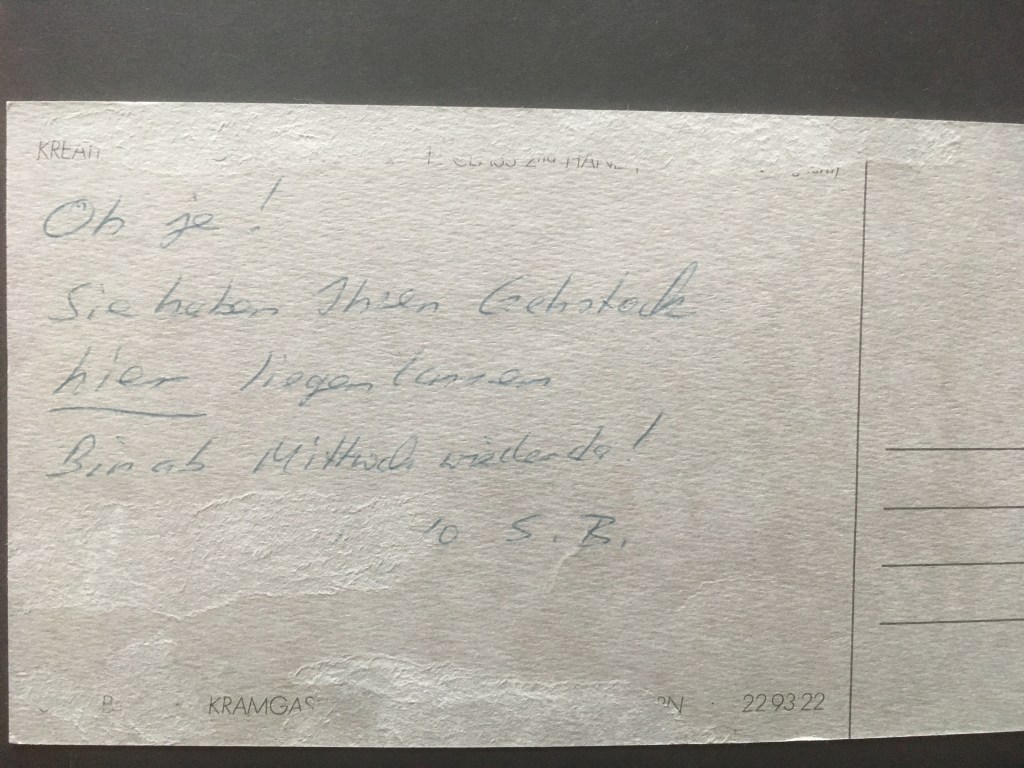 Oh je!
Sie haben Ihren Gehstock
hier liegenlassen
Bin ab Mittwoch wieder da!
S. B.
KRAMGAS
22 93 22